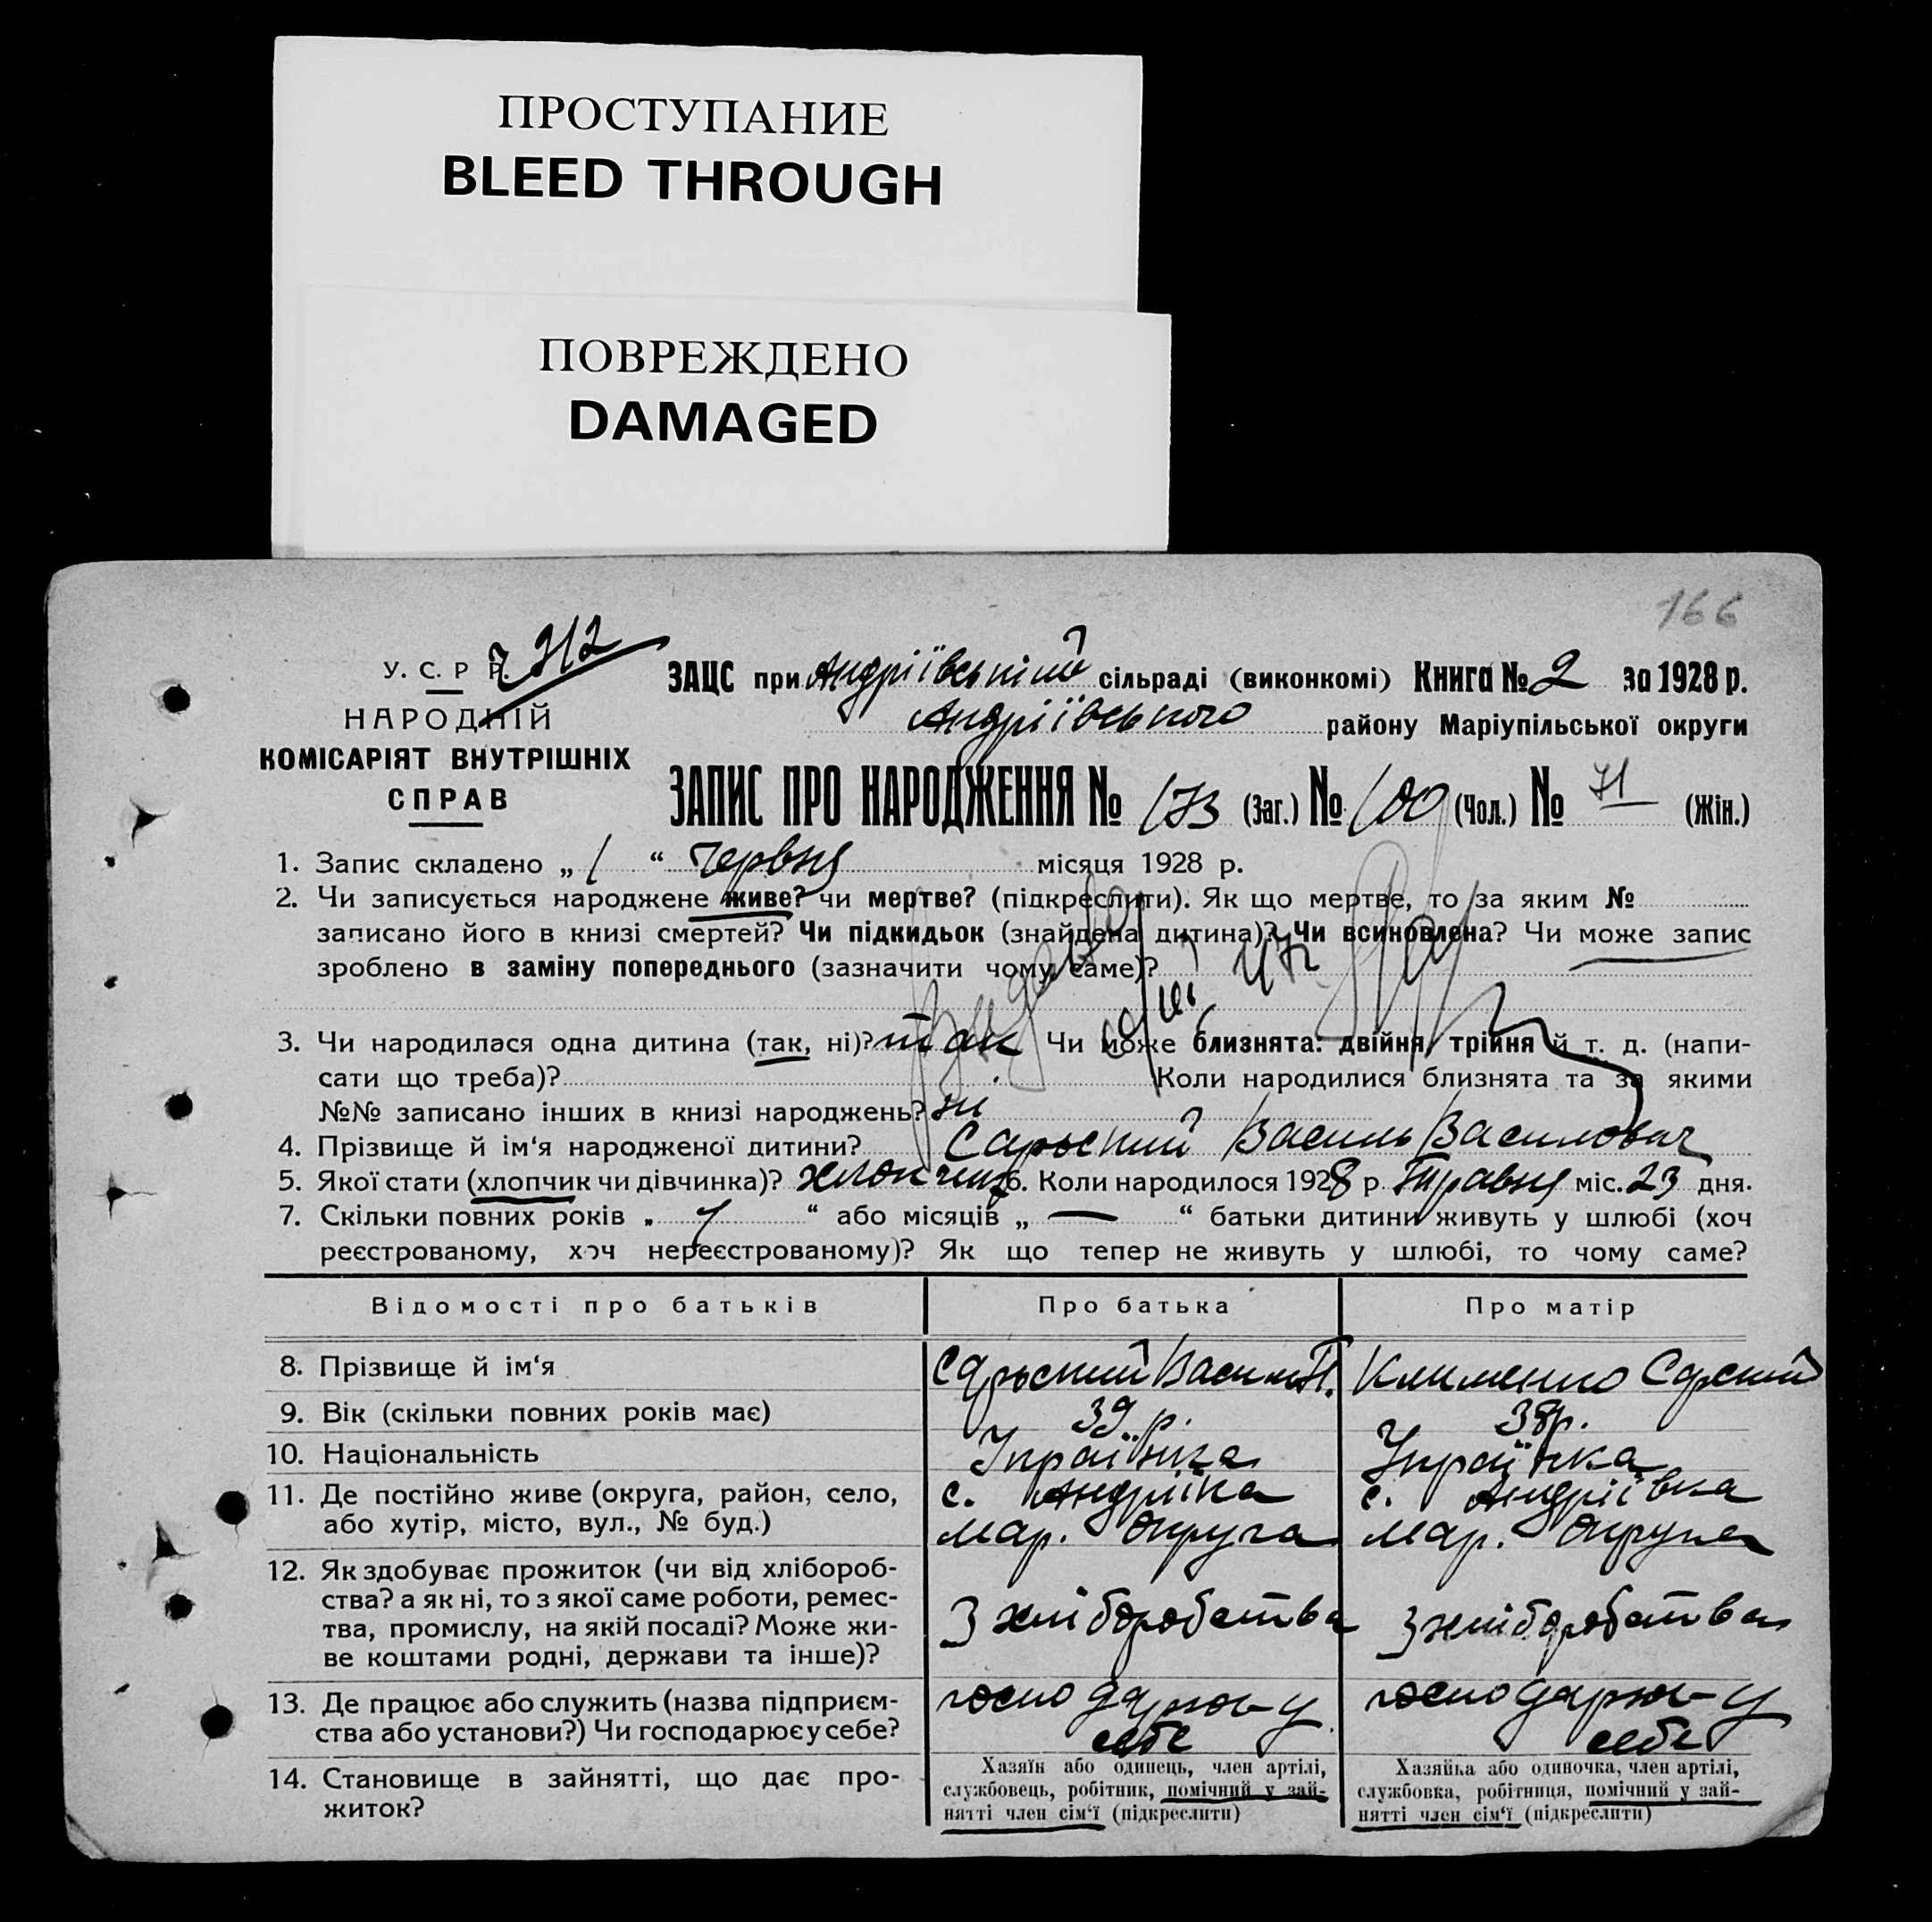 ПРОСТУПАНИЕ
BLEED THROUGH
ПОВРЕЖДЕНО
DAMAGED
166
312
У. С. Р Р.
НАРОДНІЙ
КОМІСАРІЯТ ВНУТРІШНІХ
СПРАВ
ЗАЦС при Андріївській сільраді (виконкомі) Книга № 2 за 1928 р.
Андріївського району Маріупільської округи
ЗАПИС ПРО НАРОДЖЕННЯ № 173 (Заг.) № 100 (Чол.) № 71 (Жін.)
1. Запис складено „ 1 “ Червня місяця 1928 р.
2. Чи записується народжене живе? чи мертве? (підкреслити). Як що мертве, то за яким №
записано його в книзі смертей? Чи підкидьок (знайдена дитина)? Чи всиновлена? Чи може запис
зроблено в заміну попереднього (зазначити чому саме)?
3. Чи народилася одна дитина (так, ні)? так Чи може близнята: двійня, трійня й т. д. (напи-
сати що треба)? Коли народилися близнята та за якими
№№ записано інших в книзі народжень? ні
4. Прізвище й ім‘я народженої дитини? Сарьский Василь Василович
5. Якої стати (хлопчик чи дівчинка)? хлопчик 6. Коли народилося 1928 р. Травня міс. 23 дня.
7. Скільки повних років „ “ або місяців „ — “ батьки дитини живуть у шлюбі (хоч
реєстрованому, хоч нереєстрованому)? Як що тепер не живуть у шлюбі, то чому саме?
Відомості про батьків Про батька Про матір
8. Прізвище й ім‘я Сарьский Василь Клименко Сарский
9. Вік (скільки повних років має) 39 р. 38 р.
10. Національність Українка Українка
11. Де постійно живе (округа, район, село, с. Андріївка с. Андріївка
або хутір, місто, вул., № буд.) Мар. Округа Мар. Округа
12. Як здобуває прожиток (чи від хлібороб-
ства? а як ні, то з якої саме роботи, ремес-
тва, промислу, на якій посаді? Може жи- З хліборобства З хліборобства
ве коштами родні, держави та інше)?
13. Де працює або служить (назва підприєм- господарює у господарює у
ства або установи?) Чи господарює у себе? себе себе
14. Становище в зайнятті, що дає про-
житок?
Хазяїн або одинець, член артілі,
службовець, робітник, помічний у зай-
нятті член сім‘ї (підкреслити)
Хазяйка або одиночка, член артілі,
службовка, робітниця, помічний у зай-
нятті член сім‘ї (підкреслити)